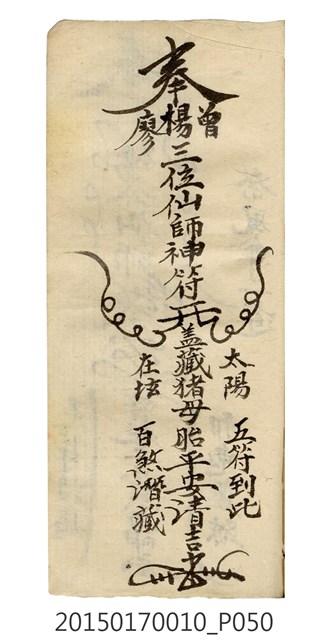 奉
曾楊廖
三位仙師神符
蓋藏猪母胎平安清吉
太陽 五符到此
在坟 百煞潛藏
20150170010_P050